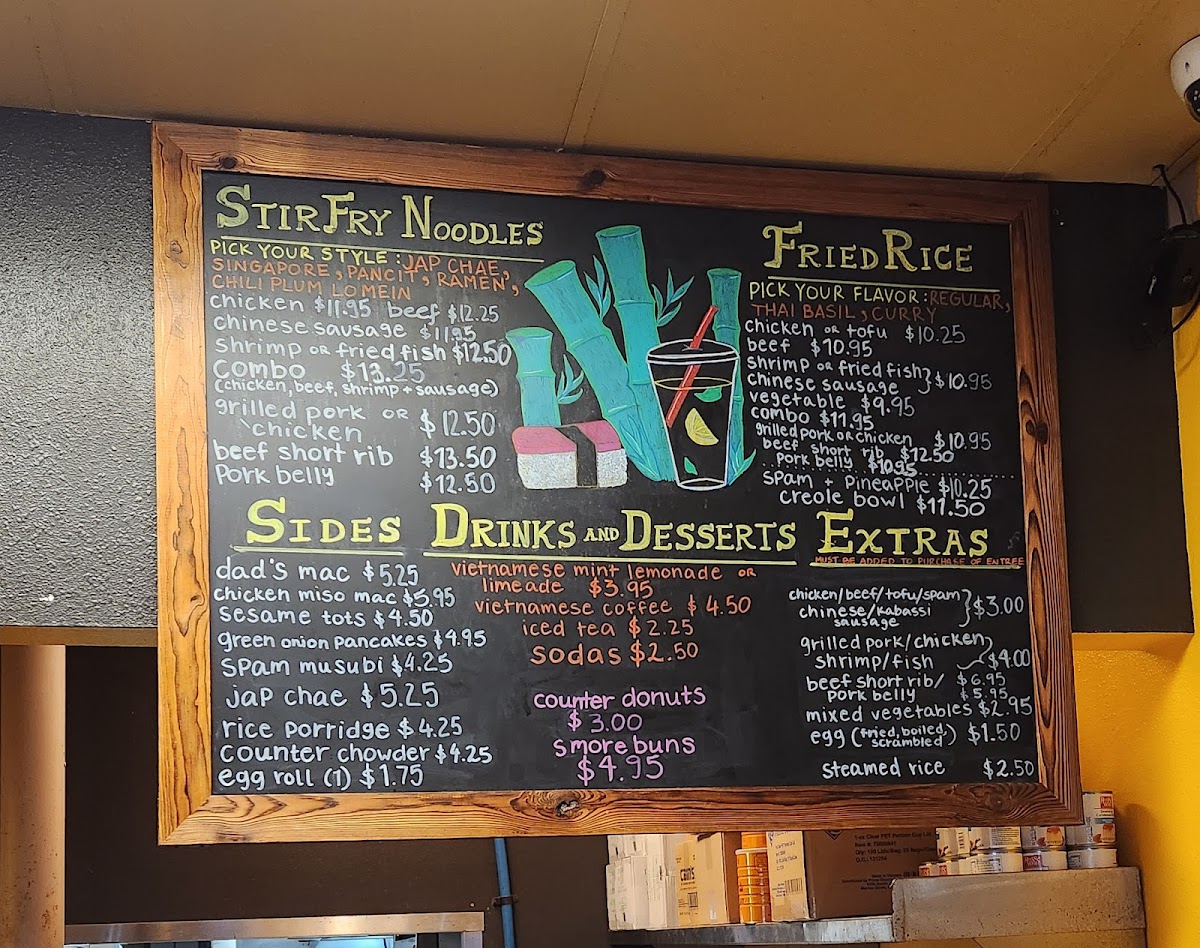 STIR FRY NOODLES
PICK YOUR STYLE: JAP CHAE,
SINGAPORE, PANCIT, RAMEN,
CHILI PLUM LO MEIN
chicken $11.95 beef $12.25
chinese sausage $11.95
shrimp OR fried fish $12.50
combo $13.25
(chicken, beef, shrimp + sausage)
grilled pork OR $12.50
chicken
beef short rib $13.50
pork belly $12.50
FRIED RICE
PICK YOUR FLAVOR: REGULAR,
THAI BASIL, CURRY
chicken OR tofu $10.25
beef $10.95
shrimp OR fried fish
chinese sausage } $10.95
vegetable $9.95
combo $11.95
grilled pork OR chicken $10.95
beef short rib $12.50
pork belly $10.95
spam + pineapple $10.25
creole bowl $11.50
SIDES
dad's mac $5.25
chicken miso mac $5.95
sesame tots $4.50
green onion pancakes $4.95
spam musubi $4.25
jap chae $5.25
rice porridge $4.25
counter chowder $4.25
egg roll (1) $1.75
DRINKS AND DESSERTS
vietnamese mint lemonade OR
limeade $3.95
vietnamese coffee $4.50
iced tea $2.25
sodas $2.50
counter donuts
$3.00
smore buns
$4.95
EXTRAS
MUST BE ADDED TO PURCHASE OF ENTREE
chicken/beef/tofu/spam
chinese/kabassi } $3.00
sausage
grilled pork/chicken
shrimp/fish $4.00
beef short rib/ $6.95
pork belly $5.95
mixed vegetables $2.95
egg (fried, boiled, scrambled) $1.50
steamed rice $2.50